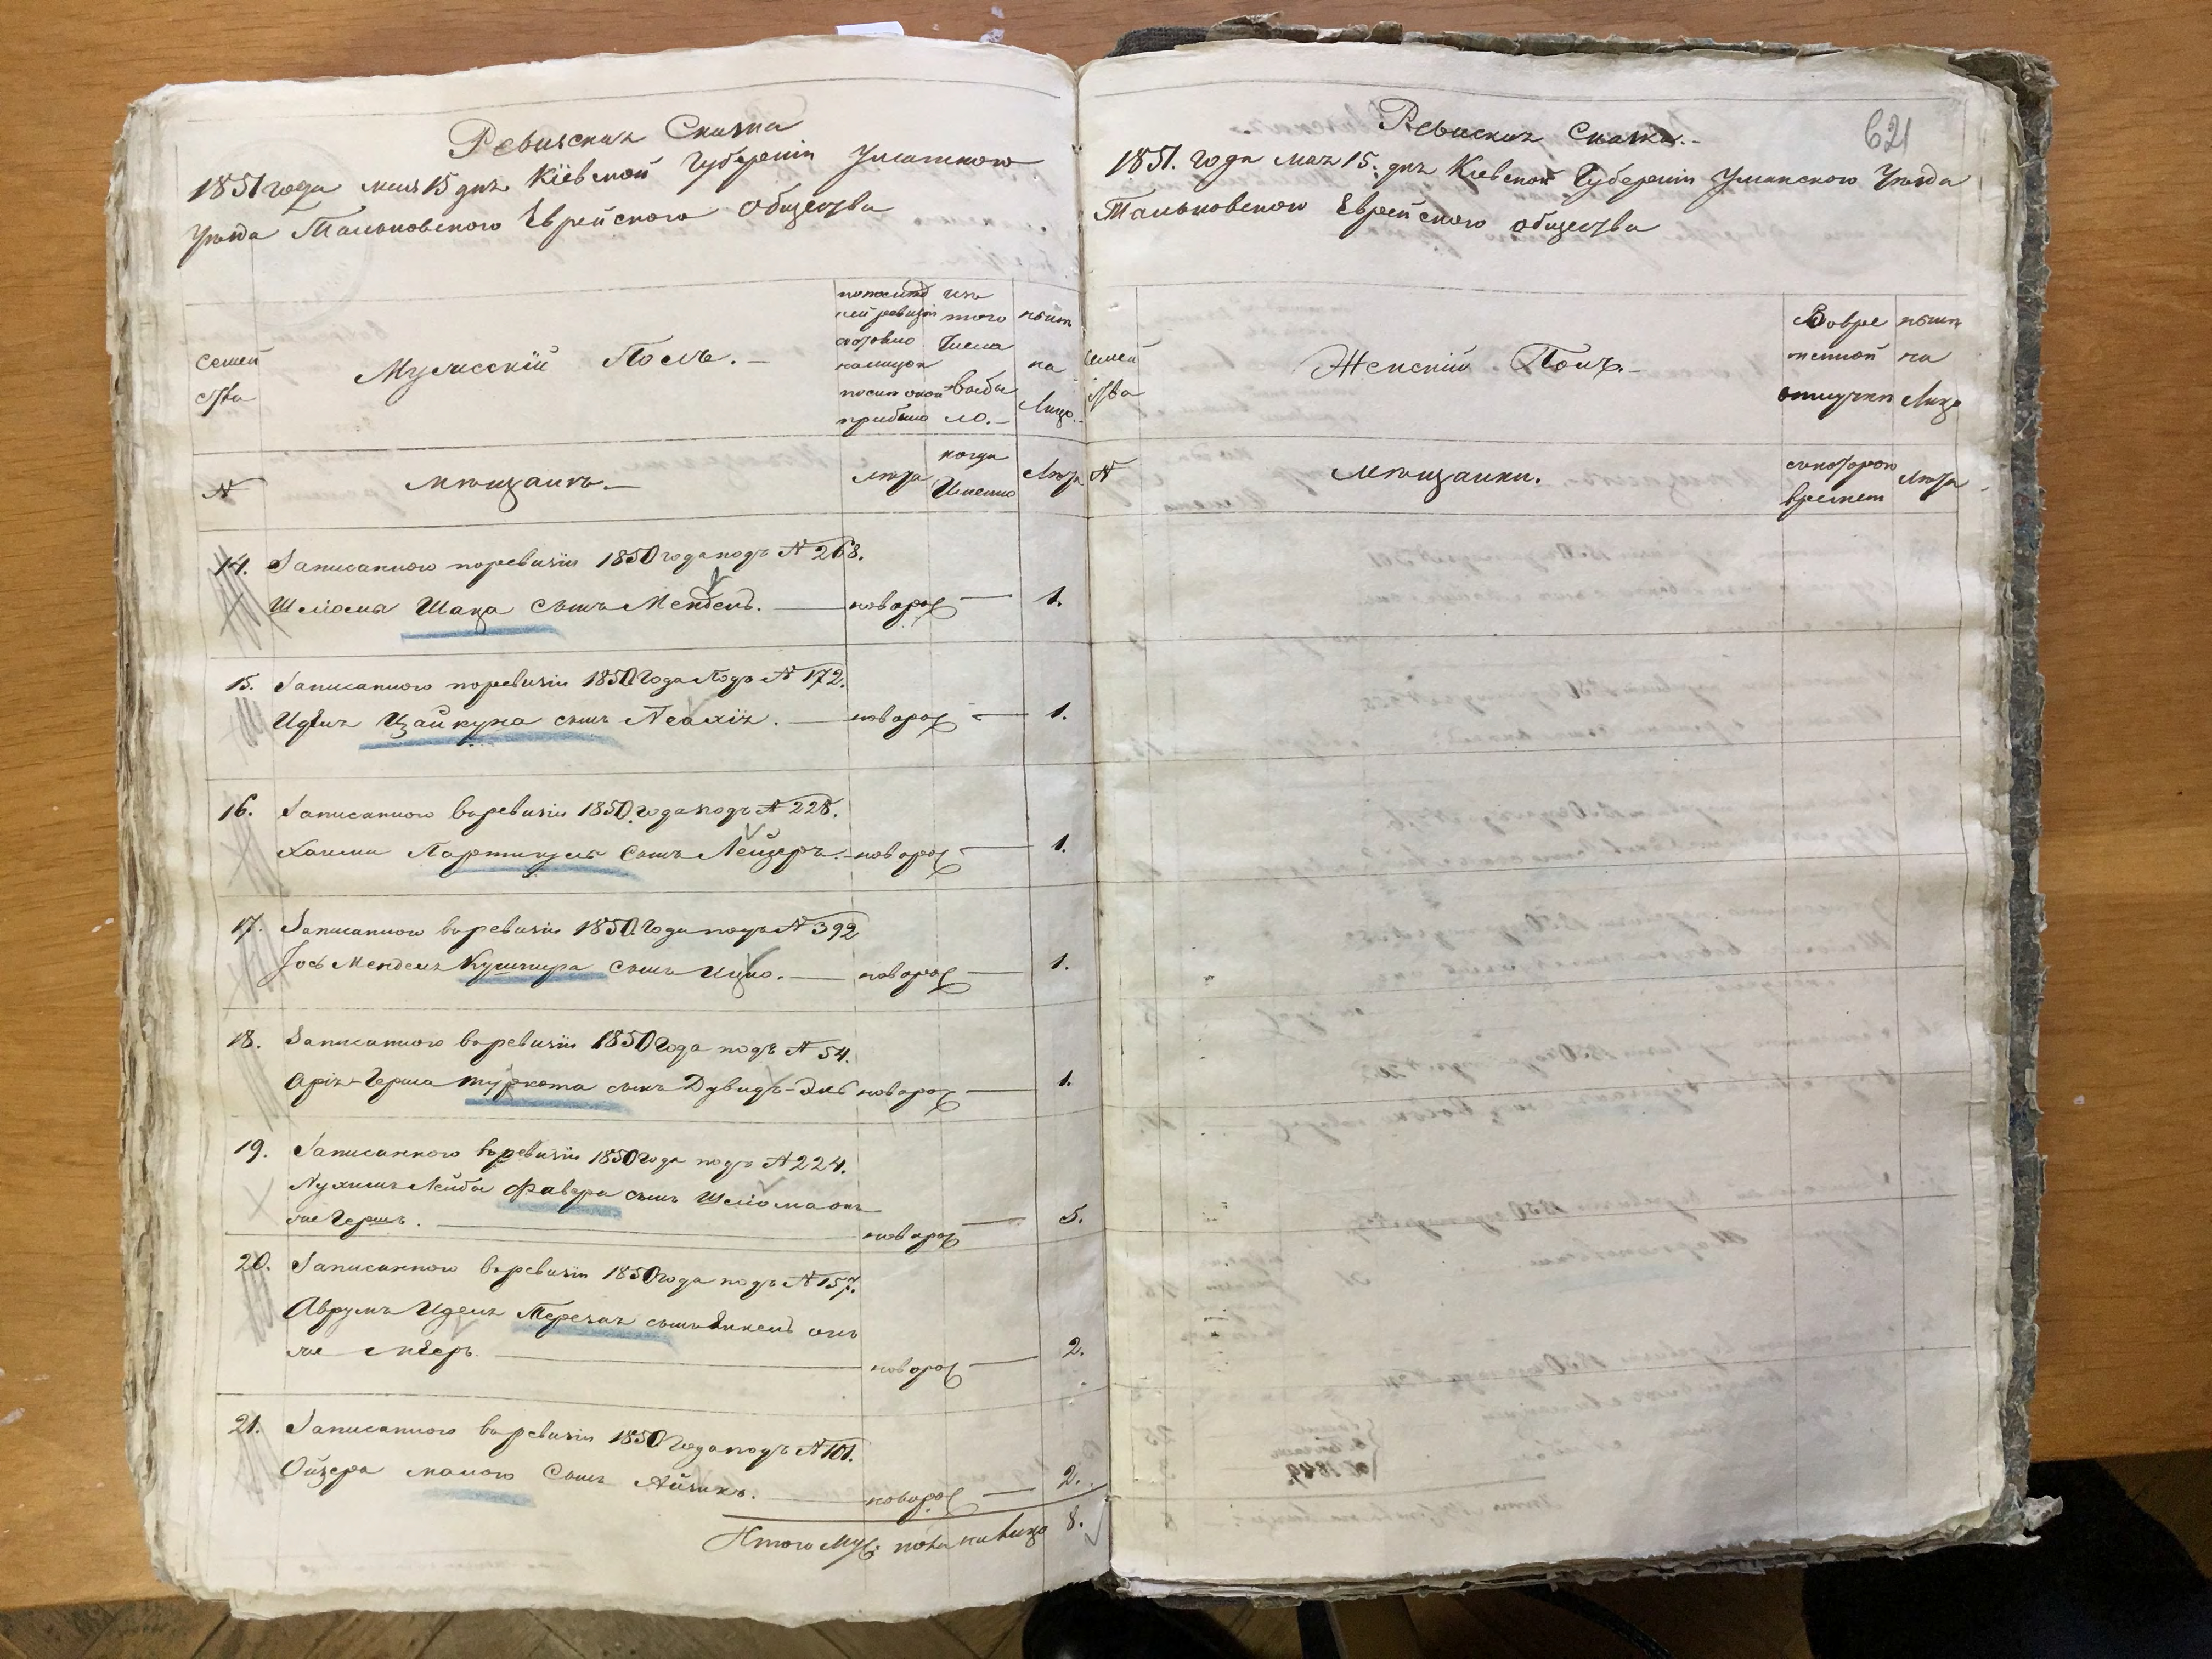 Ревизская Сказка
1851 года мая 15 дня Кіевской Губерніи Уманскаго
Уѣзда Тальновского Еврейского Общества
семей
ства
Мужескій Полъ.
по послѣд
ней ревизіи
состояло
и послѣ оной
прибыло
изъ
того
числа
выбы
ло.
нынѣ
на
Лицо.
№
мѣщанъ.
лѣта
когда
Именно
Лѣта
14. Записанного по ревизіи 1850 года подъ № 268.
Шліомы Шаца сынъ Мендель. новорож 1.
15. Записанного по ревизіи 1850 Года Подъ № 172.
Иделя Цайкуна сынъ новорож 1.
16. Записанного в ревизіи 1850. года подъ № 228.
Хаима сынъ Лейзеръ. новорож 1.
17. Записанного в ревизіи 1850 Года подъ № 392
Іось Менделя Кушнира сынъ Ицко. новорож 1.
18. Записанного в ревизіи 1850 Года подъ № 54.
Арія-Герша Туркота сынъ Дувидъ- новорож 1.
19. Записанного в ревизіи 1850 Года подъ № 224.
Нухимъ Лейбы Фавера сынъ Шліома онъ
же Гершъ. новорож
20. Записанного в ревизіи 1850 года подъ № 157.
Аврумъ Иделя сынъ онъ
же новорож 2.
21. Записанного в ревизіи 1850 Года подъ № 101.
Ойзера малого Сынъ Айзикъ. новорож 2.
Итого муж: пола на лицо 8.
621
Ревизская Сказка.
1851. года мая 15. дня Кіевской Губерніи Уманского Уѣзда
Тальновского Еврейского общества
семей
ства
Женскій Полъ.
Во вре
менной
отлучкѣ
нынѣ
на
Лицо
№
мѣщанки.
с котораго
времени
Лѣта